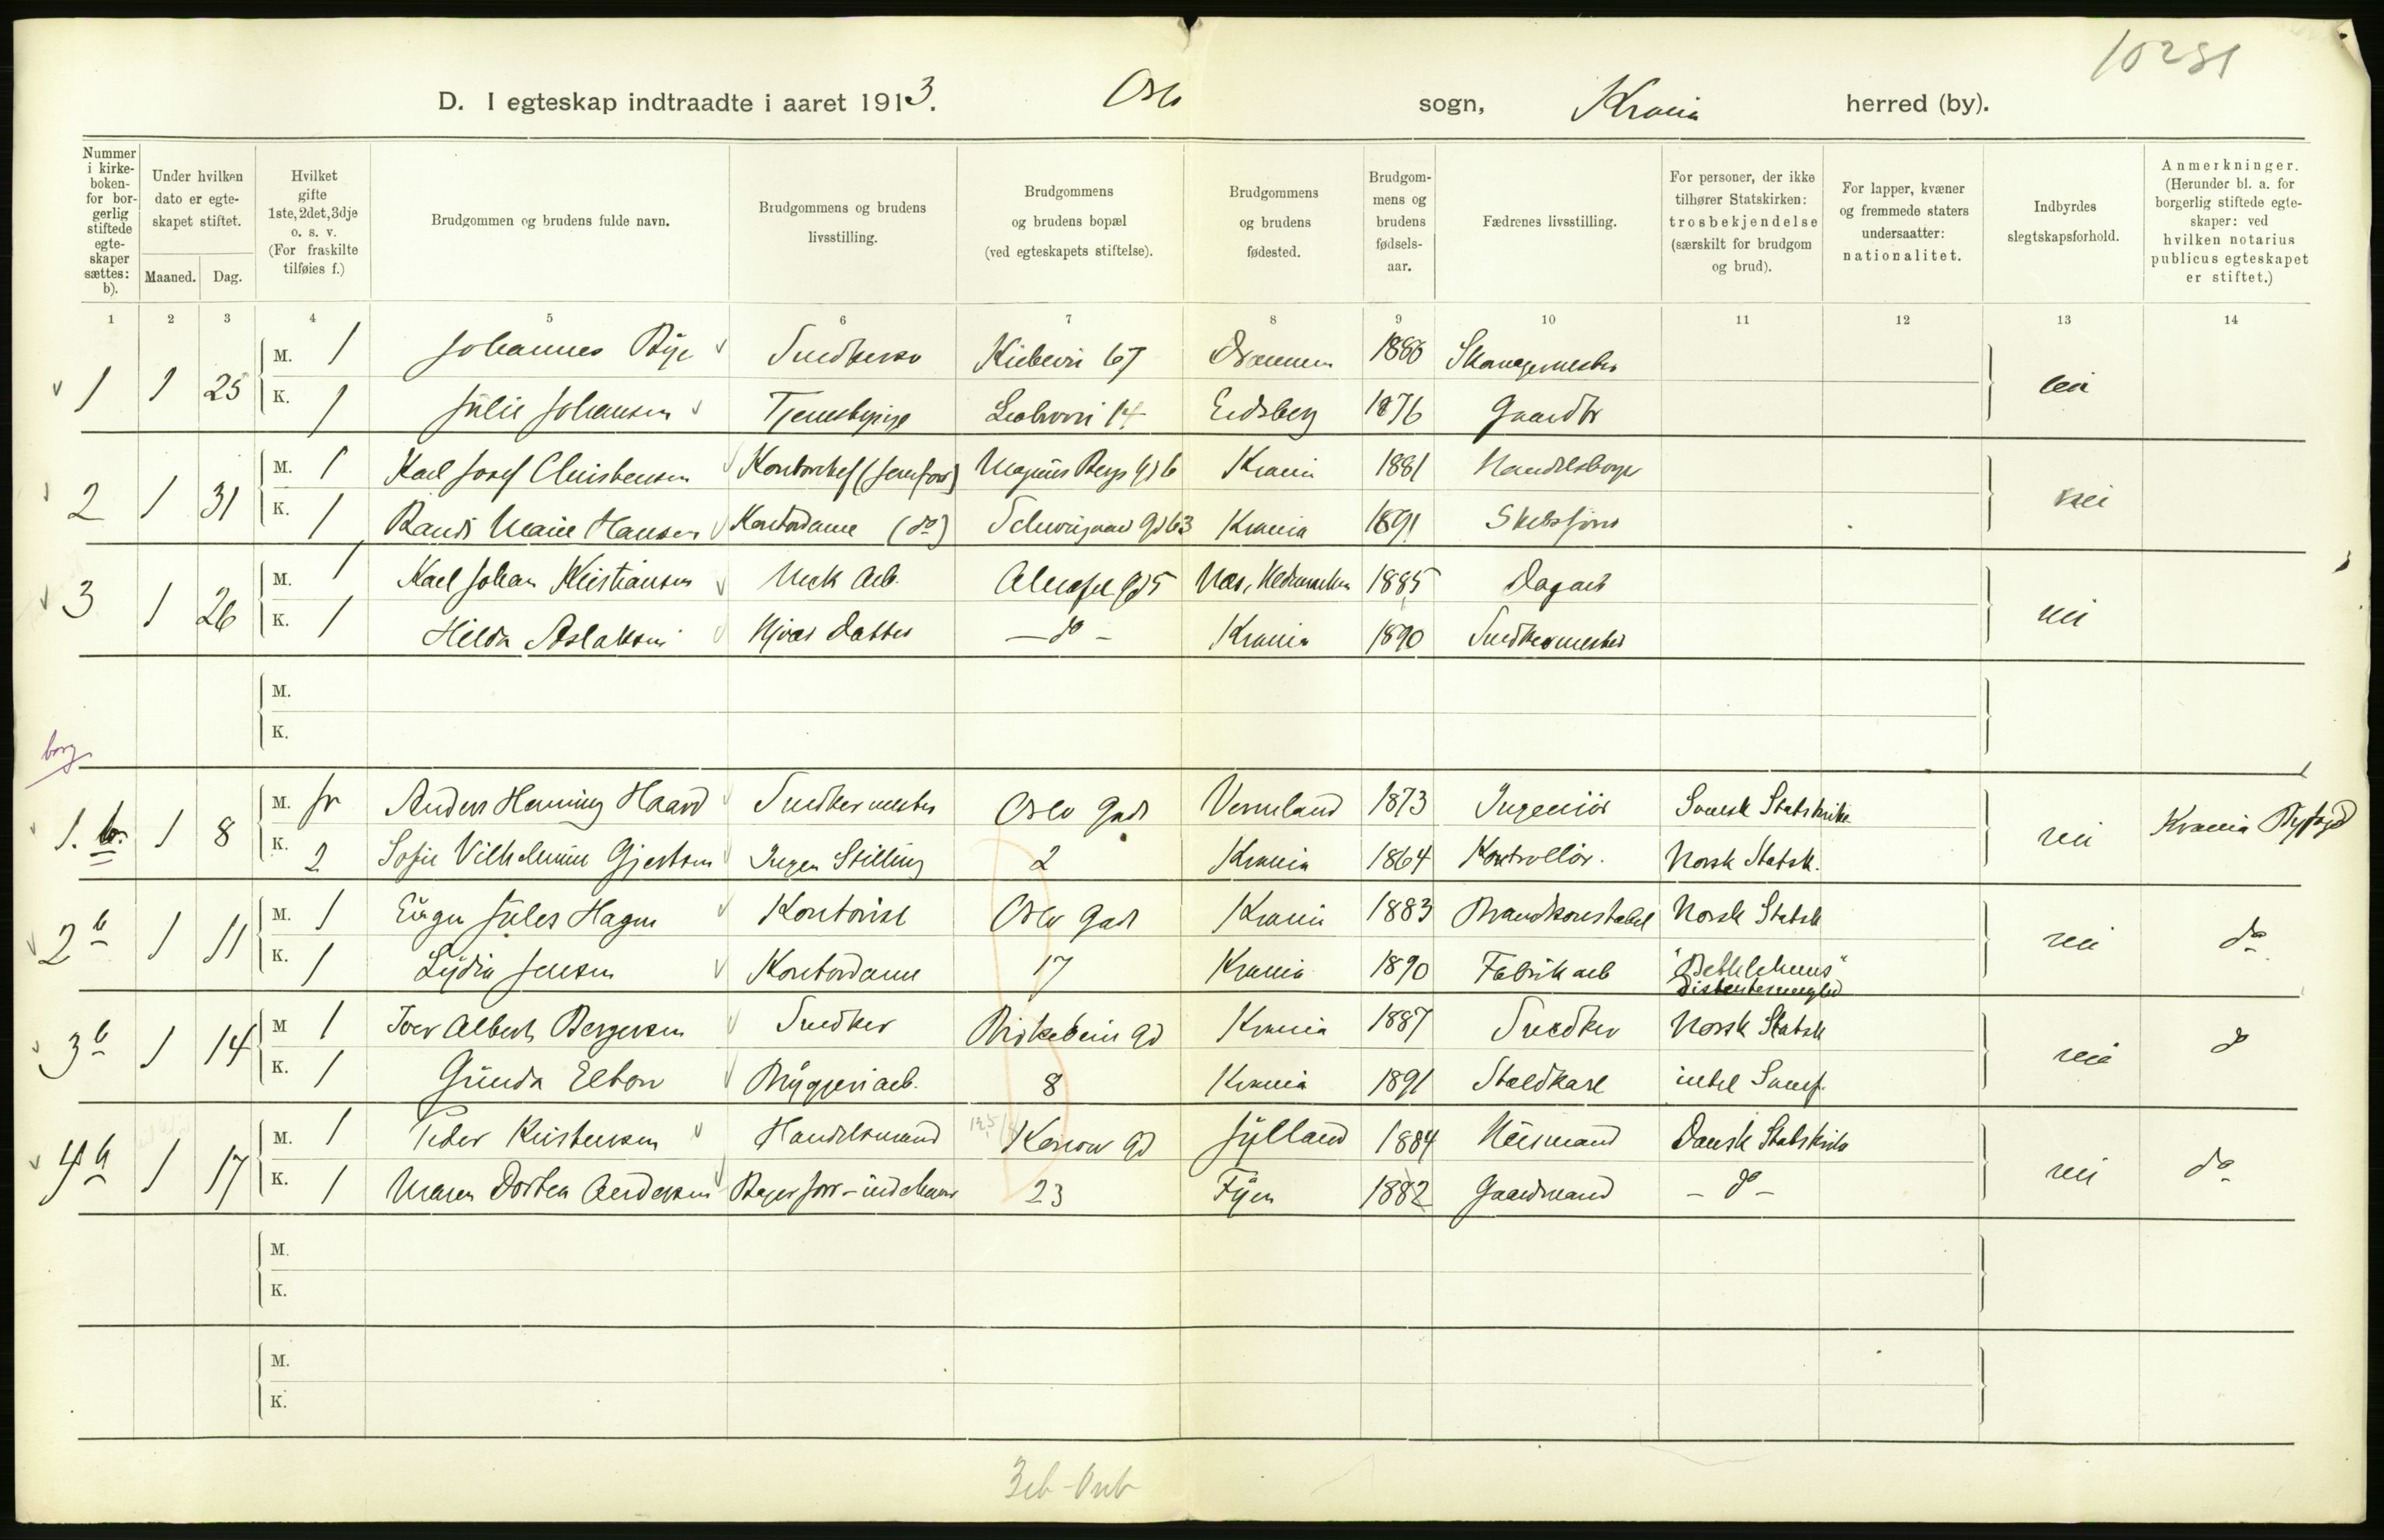 10281
D. I egteskap indtraadte i aaret 1913. Oslo sogn, Krania herred (by).
Nummer i kirke-boken- for bor-gerlig stiftede egte-skaper sættes: b).
Under hvilken dato er egte-skapet stiftet.
Maaned. Dag.
Hvilket gifte 1ste, 2det, 3dje o. s. v. (For fraskilte tilføies f.)
Brudgommen og brudens fulde navn.
Brudgommens og brudens livsstilling.
Brudgommens og brudens bopæl (ved egteskapets stiftelse).
Brudgommens og brudens fødested.
Brudgom-mens og brudens fødsels-aar.
Fædrenes livsstilling.
For personer, der ikke tilhører Statskirken: trosbekjendelse (særskilt for brudgom og brud).
For lapper, kvæner og fremmede staters undersaatter: nationalitet.
Indbyrdes slegtskapsforhold.
Anmerkninger. (Herunder bl. a. for borgerlig stiftede egte-skaper: ved hvilken notarius publicus egteskapet er stiftet.)
1 2 3 4 5 6 7 8 9 10 11 12 13 14
1 1 25 M. 1 Johannes Bye Snedkersv Drammen 1886 nei
K. 1 Julie Johansen Tjenestepige 14 Eidsberg 1876 Gaardbr
2 1 31 M. 1 Karl Josef Christensen Kontorchef Magnus Bergs Gd 6 Krania 1881 Handelsborger nei
K. 1 Randi Marie Hansen Kontordame (do) Schweigaard Gd 63 Krania 1891 Skibsfører
3 1 26 M. 1 Karl Johan Kristiansen Mek Arb. Almefel Gd 5 Nes, Hedemarken 1885 Dagarb nei
K. 1 Hilda Aslaksen Hjvær Datter — do — Krania 1890 Snedkermester
M.
K.
borg
1. b. 1 8 M. fr Anders Henning Haard Snedkermester Oslo Gade Vermland 1873 Ingeniör Svensk Statskirke nei Krania Byfogd
K. 2 Sofie Vilhelmine Gjertsen Ingen Stilling 2 Krania 1864 Kontrollør. Norsk Statsk.
2 b 1 11 M. 1 Eugen Jules Hagen Kontorist Oslo Gade Krania 1883 Brandkonstabel Norsk Statsk nei do
K. 1 Lydia Jensen Kontordame 17 Krania 1890 Fabrikarb "Bethlehems" Dissentermenighed
3 b 1 14 M 1 Iver Albert Bergersen Snedker Birkebein Gd Krania 1887 Snedker Norsk Statsk nei do
K. 1 Gunda Elton Bryggeriarb. 8 Krania 1891 Staldkarl intet Samf.
4 b 1 17 M. 1 Peder Kristensen Handelsmand Konow Gd Jylland 1884 Husmand Dansk Statskirke nei do
K. 1 Maren Dorthea Andersen Bagerforr-indehaver 23 Fyen 1882 Gaardmand — do —
M.
K.
M.
K.